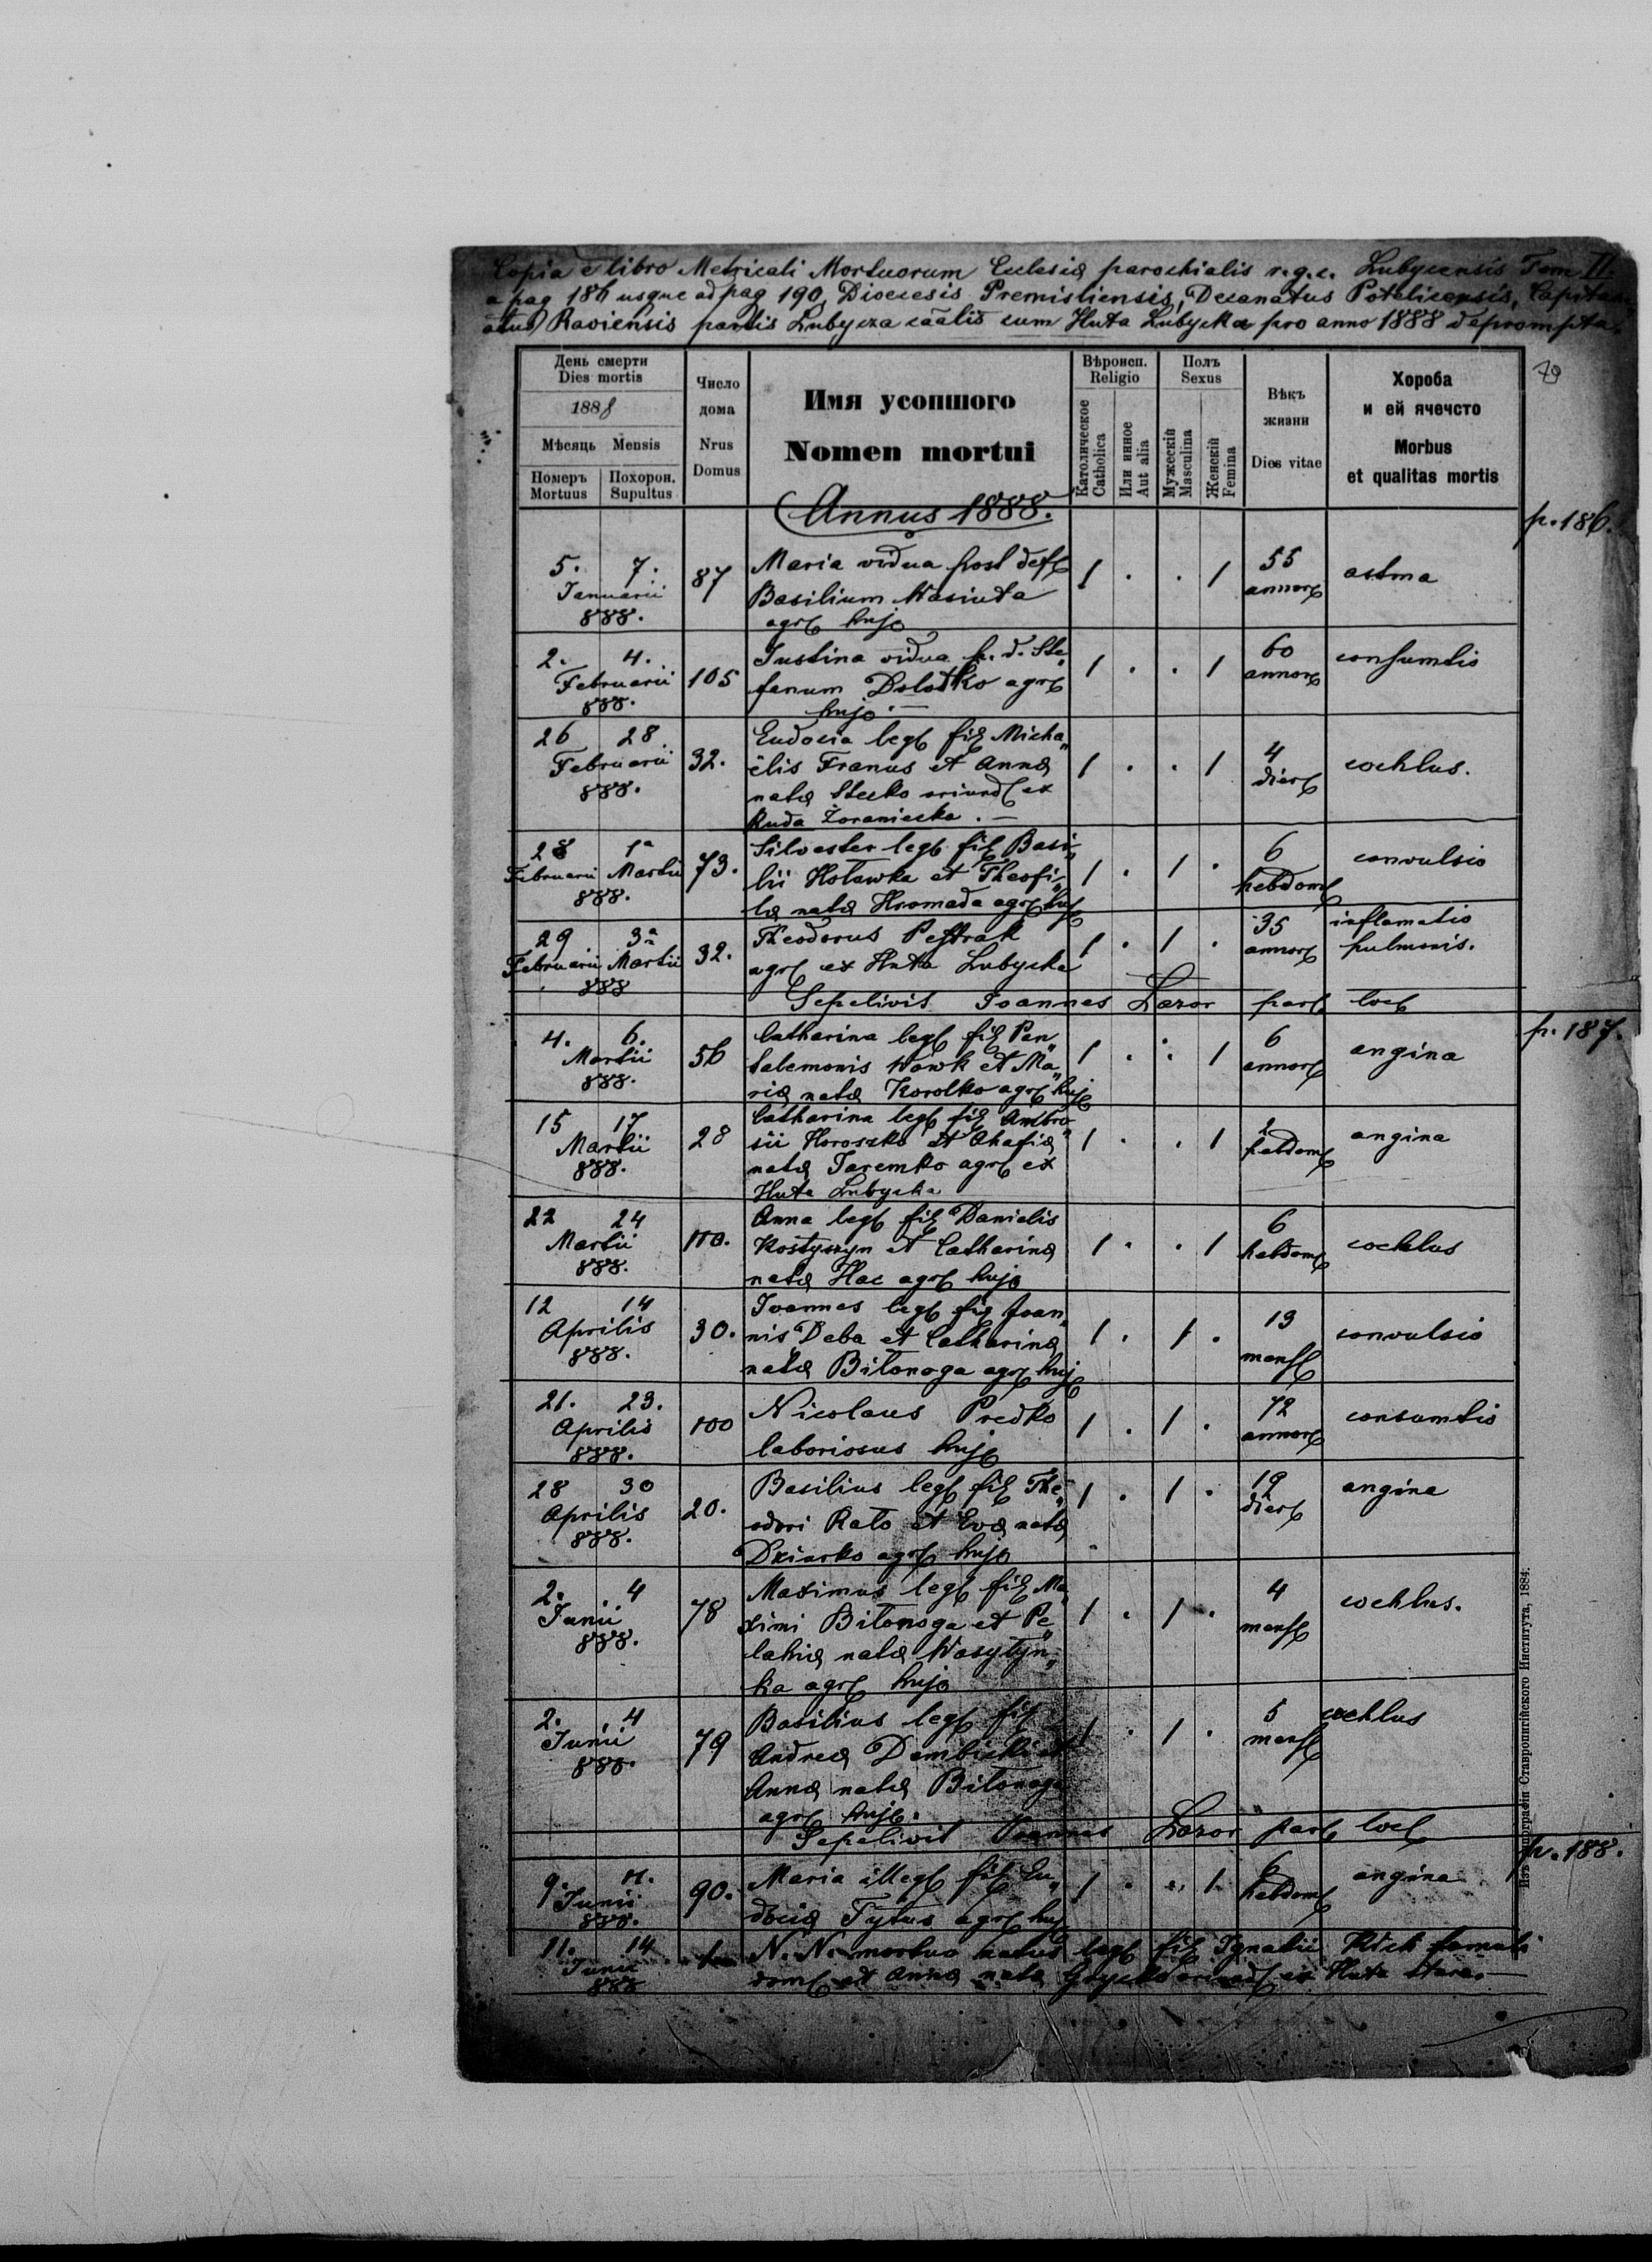 Copia è libro Metricali Mortuorum Eclesiæ parochialis r.g.c. Lubycensis Tom II.
a pag 186 usque ad pag 190, Diœcesis Premisliensis, Decanatus Potelicensis, Capitan„
atus Raviensis partis Lubycza caālis cum Huta Lubycka pro anno 1888 deprompta.
День смерти
Dies mortis
1888
Мѣсяць Mensis
Номеръ Похорон.
Mortuus Supultus
Число
дома
Nrus
Domus
Имя усопшого
Nomen mortui
Вѣроисп.
Religio
Католическое
Catholica
Или инное
Aut alia
Полъ
Sexus
Мужескій
Masculina
Женскій
Femina
Вѣкъ
жизни
Dies vitae
Хороба
и ей ячечсто
Morbus
et qualitas mortis
70
Annus 1888.
p. 186.
5. 7. 87 Maria vidua post def 1 . . 1 55 astma
Januarii Basilium Wasiuta annor
888. agr huj
2. 4. 105 Justina vidua p. d. Ste„ 1 . . 1 60 consumtio
Februarii fanum Dolotko agr annor
888. huj. —
26 28. 32. Eudocia leg fil Micha„ 1 . . 1 4 cochlus.
Februarii ëlis Franus et Annæ dier
888. natæ Stecko oriund ex
Ruda Żoraniecka. —
28 1a 73. Silvester leg fil Basi„ 1 . 1 . 6 convulsio
Februarii Martii lii Hoławka et Theofi„ hebdom
888. læ natæ Hromada agr huj
29 3a 32. Theodorus Pestrak 1 . 1 . 35 inflamatio
Februarii Martii agr ex Huta Lubycka annor pulmonis.
888
Sepelivit Joannes Lazor par loc
p. 187.
4. 6. 56 Catharina leg fil Pan„ 1 . . 1 6 angina
Martii talemonis Wowk et Ma„ annor
888. riæ natæ Korolko agr huj
15 17 28 Catharina leg fil Ambro„ 1 . . 1 2 angina
Martii sii Horoszko et Ahafiæ hebdom
888. natæ Jaremko agr ex
Huta Lubycka
22 24 110. Anna leg fil Danielis 1 . . 1 6 cochlus
Martii Kostyszyn et Catharinæ hebdom
888. natæ Hac agr huj
12 14 30. Joannes leg fil Joan„ 1 . 1 . 13 convulsio
Aprilis nis Deba et Catharinæ mens
888. natæ Biłonoga agr huj
21. 23. 100 Nicolaus Predko 1 . 1 . 72 consumtio
Aprilis laboriosus huj annor
888.
28 30 20. Basilius leg fil The„ 1 . 1 . 19 angina
Aprilis odori Rato et Evæ natæ dier
888. Dziurko agr huj
2. 4 78 Maximus leg fil Ma„ 1 . 1 . 4 cochlus.
Junii ximi Biłonoga et Pe„ mens
888. lahiæ natæ Wasyłyn„
ka agr huj
2. 4 79 Basilius leg fil 1 . 1 . 5 cochlus
Junii Andreæ Dembicki et mens
888. Annæ natæ Biłonoga
agr huj.
Sepelivit Joannes Lazor par loc
p. 188.
9. 11. 90. Maria illeg fil Eu„ 1 . . 1 6 angina
Junii dociæ Tytus agr huj hebdom
888.
11. 14 N. N. mortuo natus leg fil Ignatii famuli
Junii dom et Annæ natæ oriund ex Huta Stara. —
888
Изъ типографіи Ставропигійского Института, 1884.